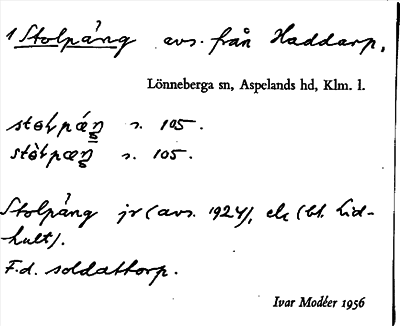 1 Stolpäng avs. från Haddarp,
Lönneberga sn, Aspelands hd, Klm. l.
s. 105.
s. 105.
Stolpäng jr (avs. 1924), ek (bl. Lid-
hult).
F.d. soldattorp.
Ivar Modéer 1956